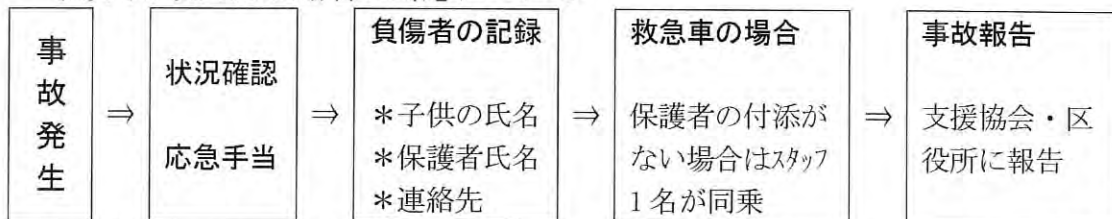 事故発生
⇒
状況確認
応急手当
⇒
負傷者の記録
*子供の氏名
*保護者氏名
*連絡先
⇒
救急車の場合
保護者の付添が
ない場合はスタッフ
1名が同乗
⇒
事故報告
支援協会・区
役所に報告